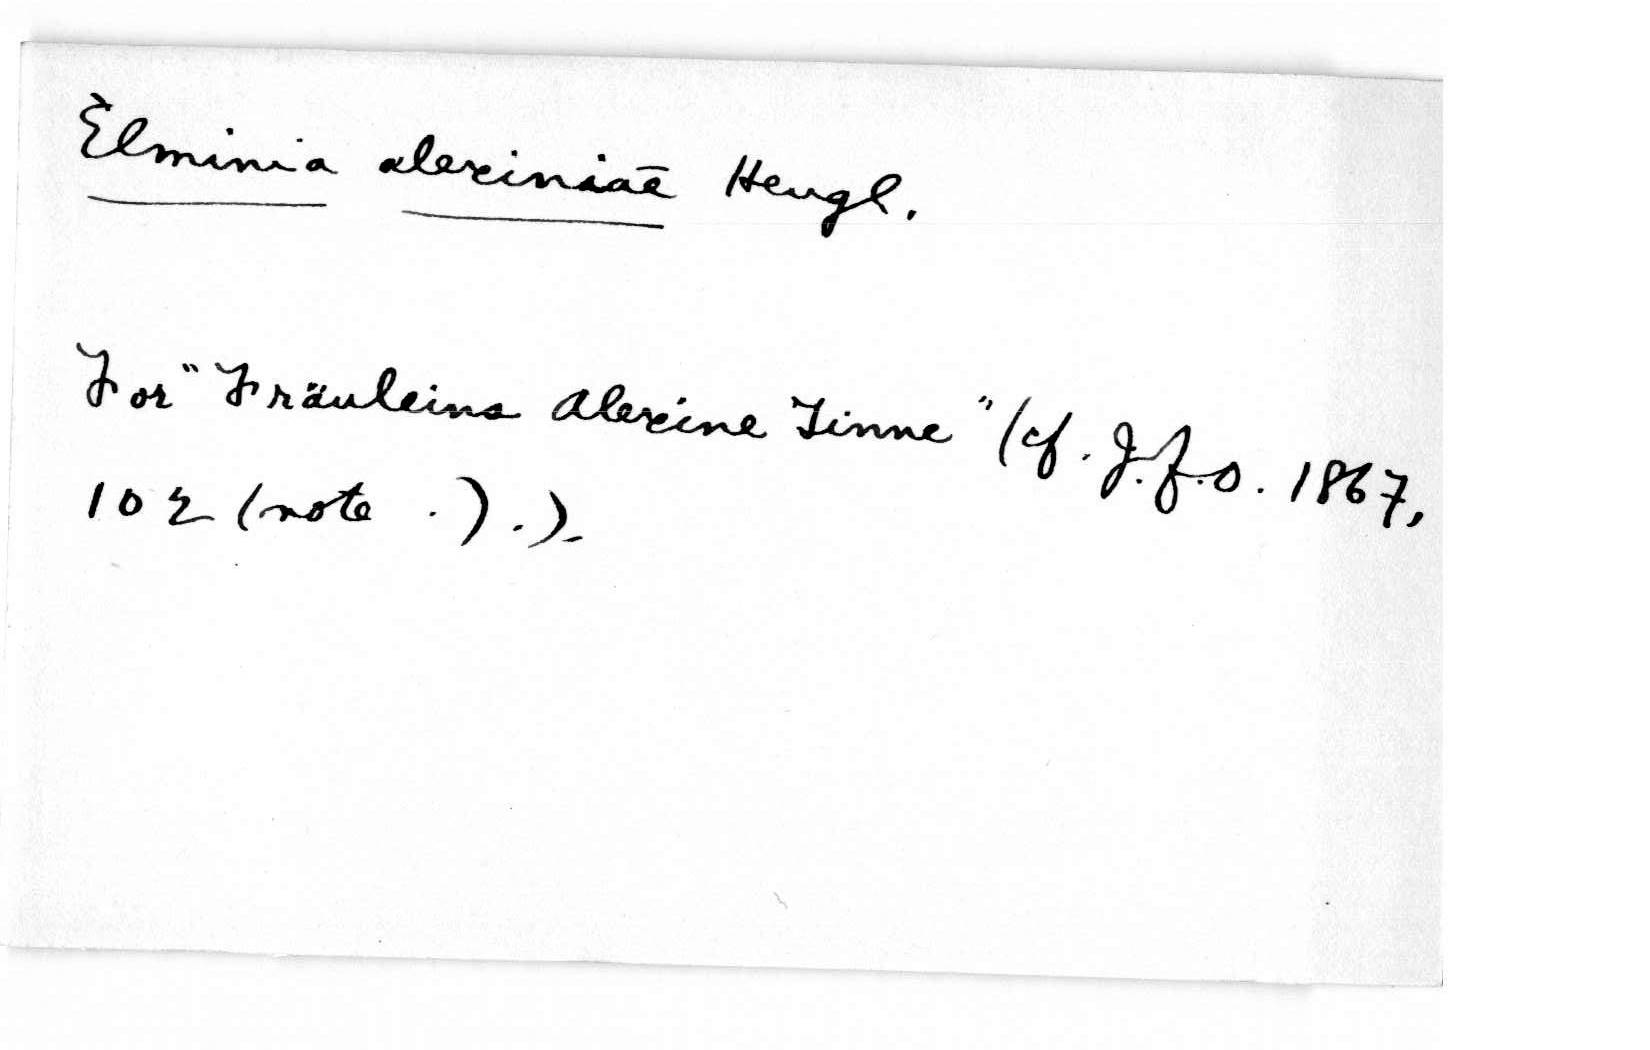 Elminia alexiniae Heugl.
For "Fräuleins Alexine Tinne" (cf. J.f.O. 1867,
102 (note .).).